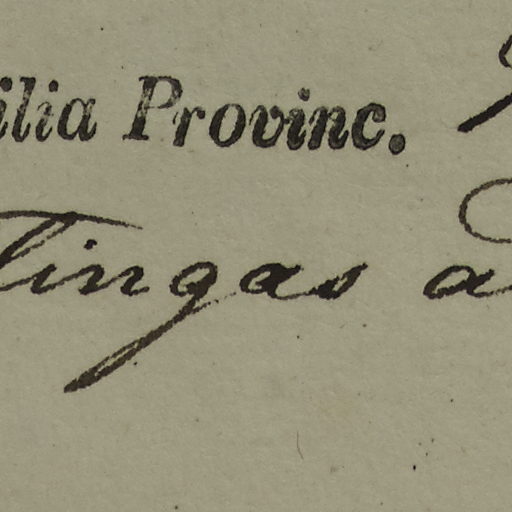 ilia Provinc.
Tingas a